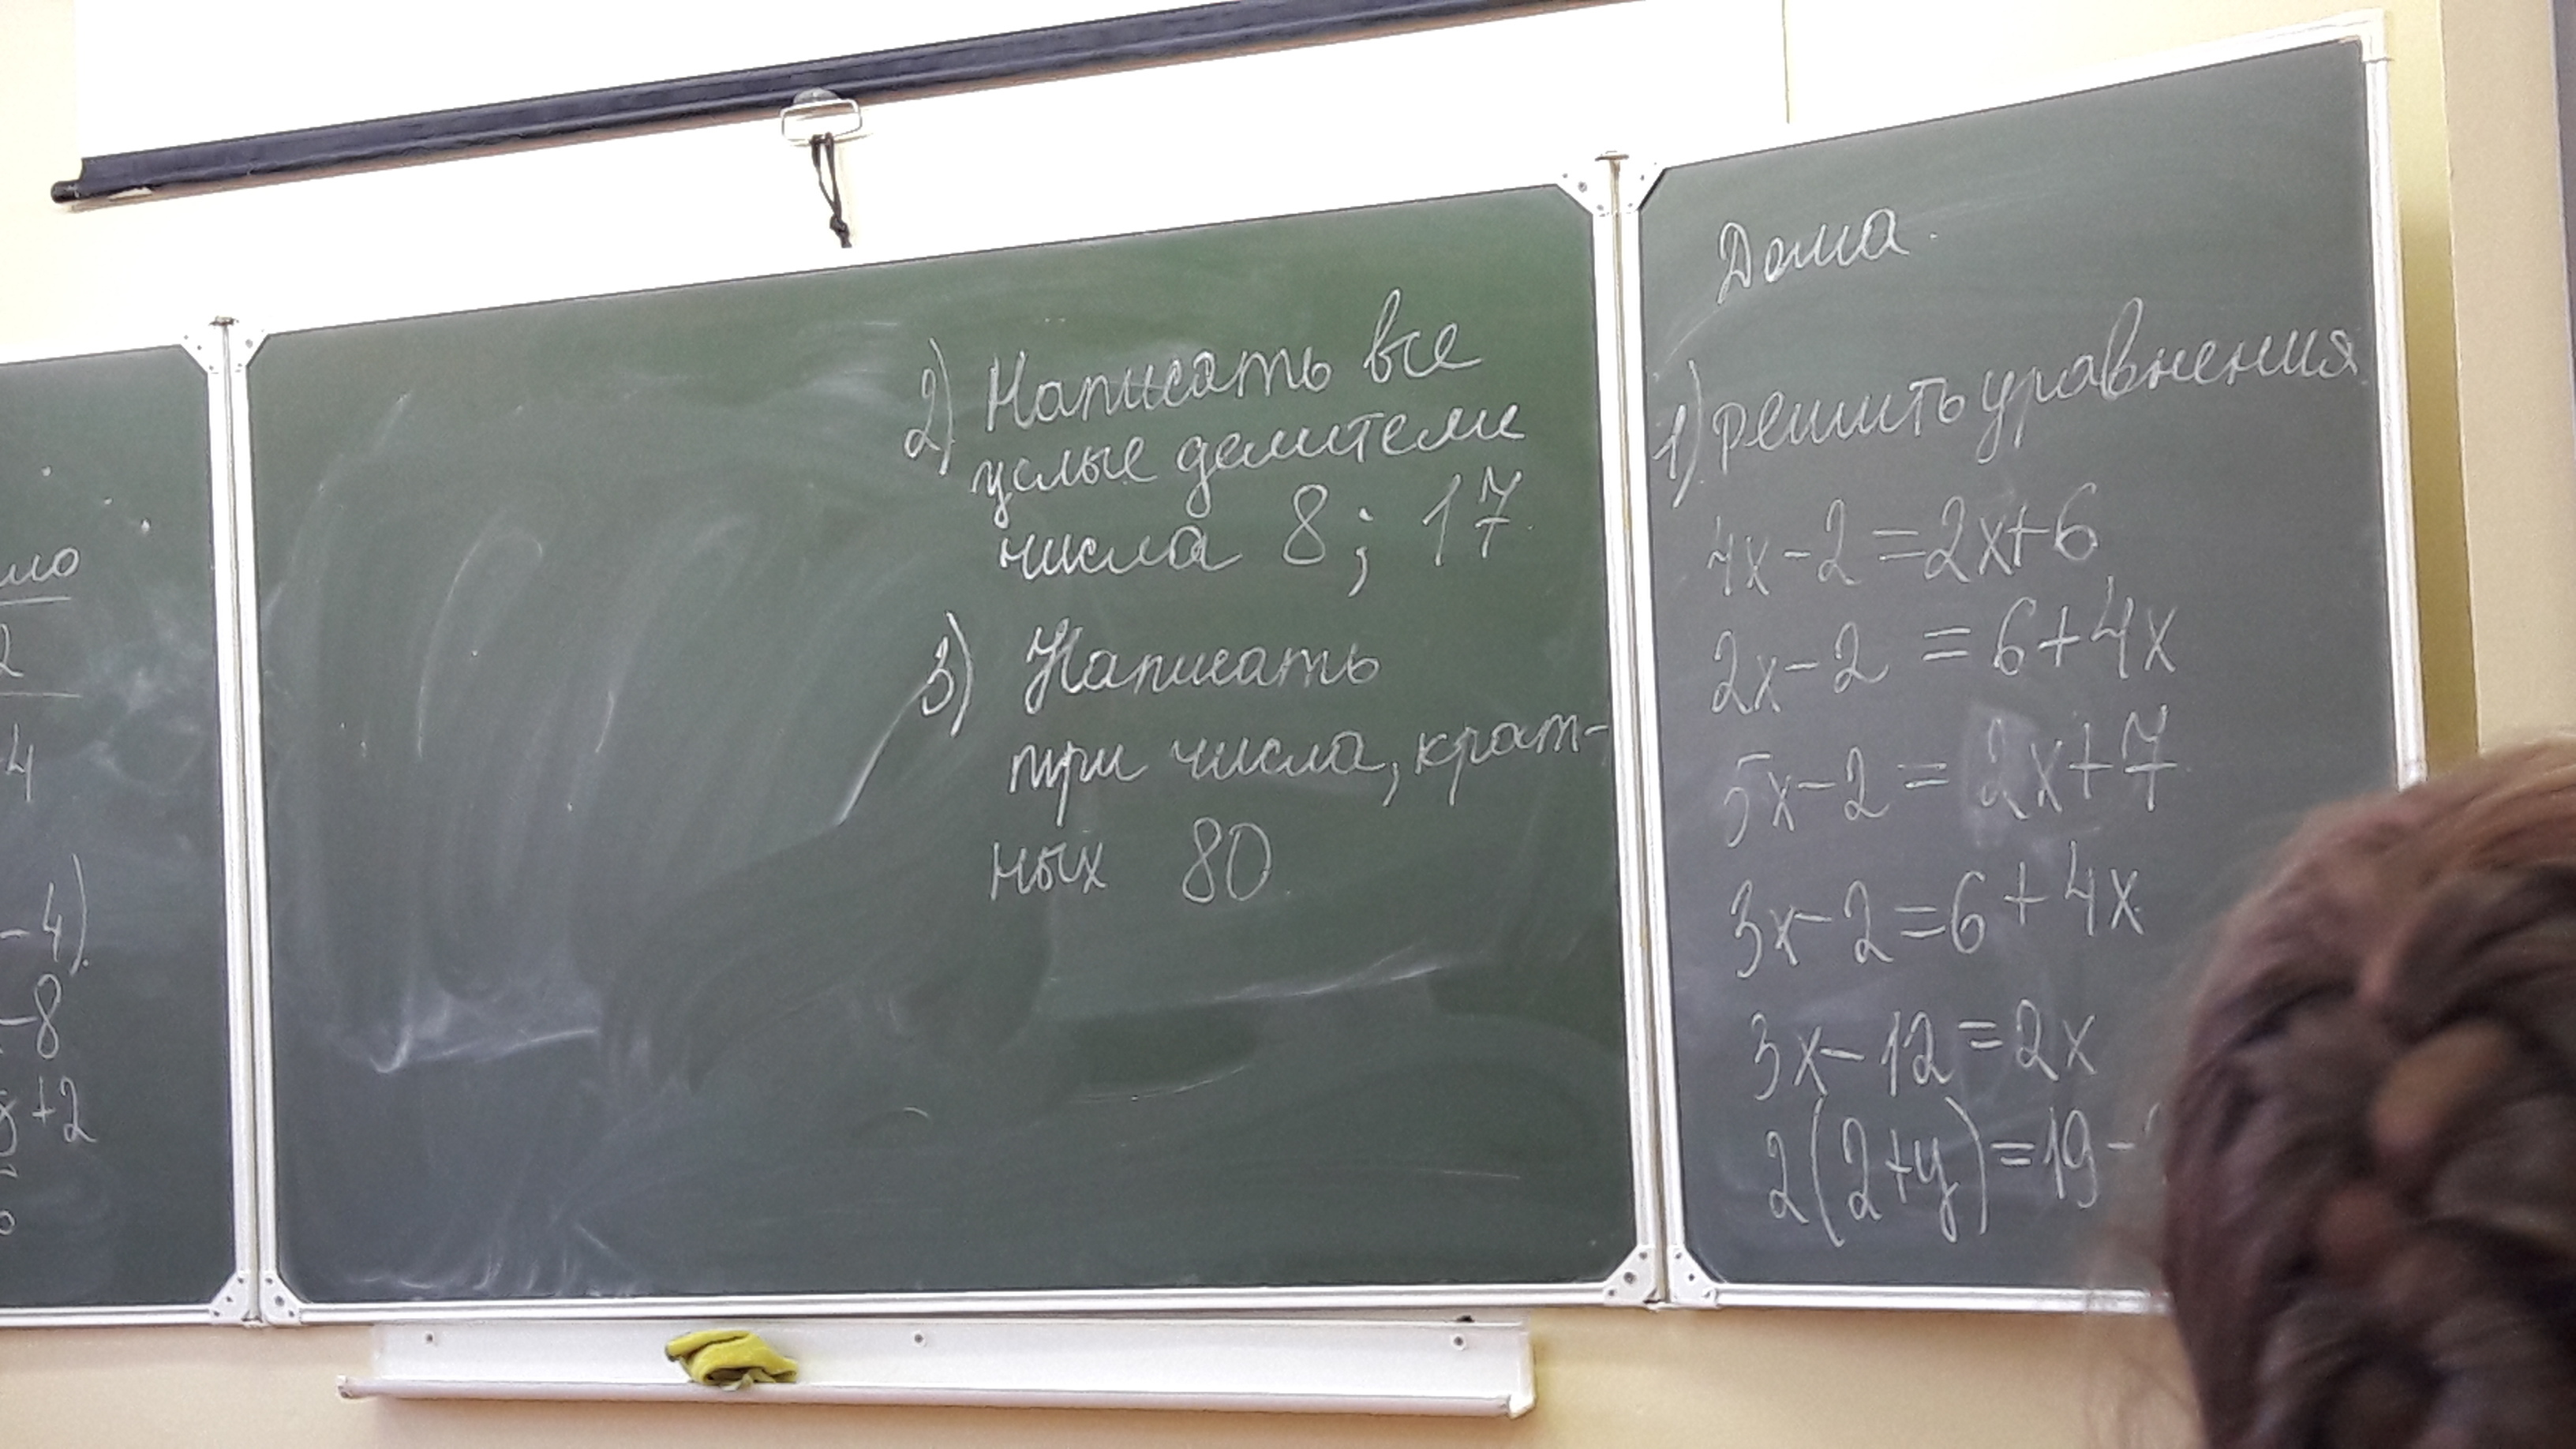 мо
2
4
-4).
-8
+2
2) Написать все
целые делители
числа 8; 17
3) Написать
три числа, крат-
ных 80
Дома.
1) решить уравнения
4x-2=2x+6
2x-2=6+4x
5x-2=2x+7
3x-2=6+4x
3x-12=2x
2(2+y)=19-